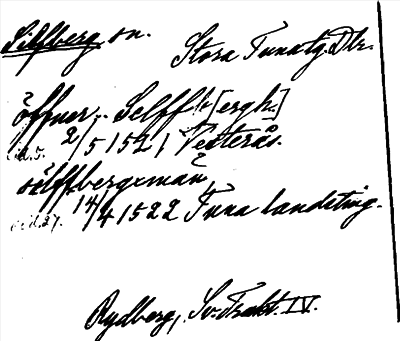 Silfberg sn.
Stora Tuna tg. Dlr.
öffuer Selffb[ergh.]
2/5 1521 Vesterås.
sölffbergxman
14/4 1522 Tuna landsting.
Rydberg, Sv. Trakt. IV.